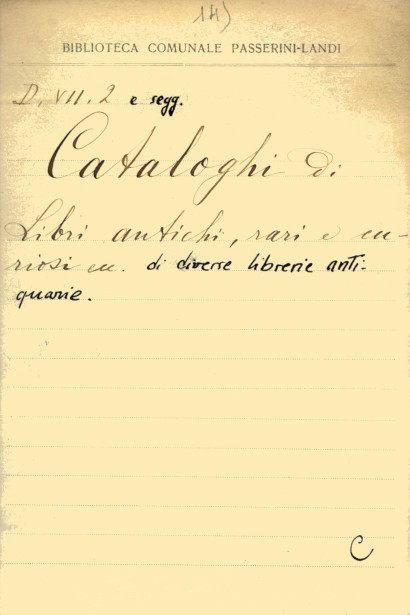 14)
BIBLIOTECA COMUNALE PASSERINI-LANDI
D. VII. 2 e segg.
Cataloghi di
Libri antichi, rari e cu-
riosi ec. di diverse librerie anti-
quarie.
C